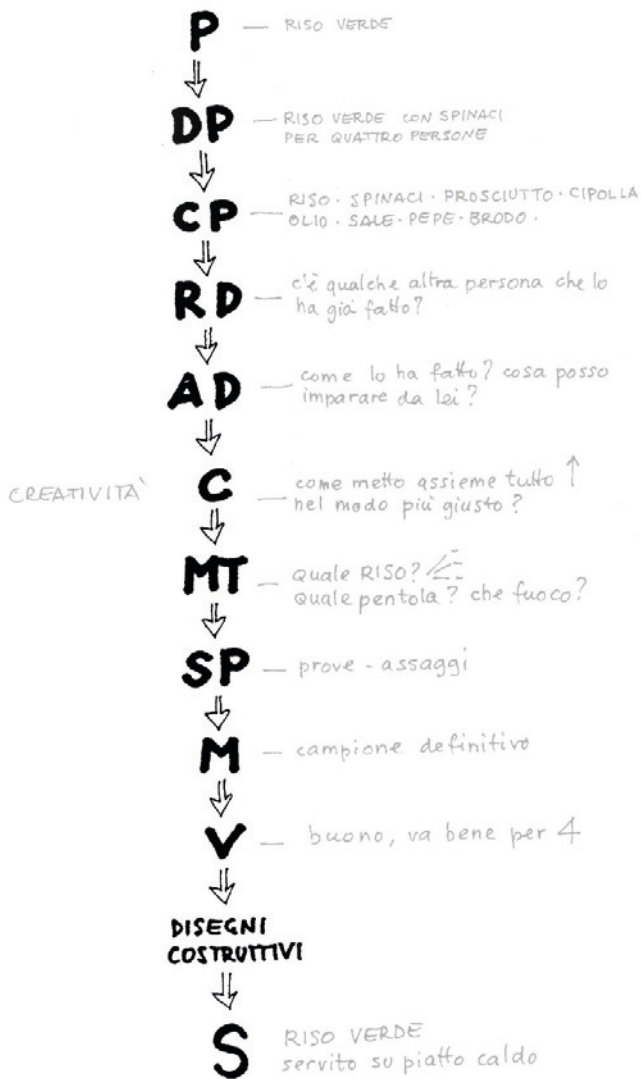 P — RISO VERDE
DP — RISO VERDE CON SPINACI
PER QUATTRO PERSONE
CP — RISO · SPINACI · PROSCIUTTO · CIPOLLA
OLIO · SALE · PEPE · BRODO ·
RD — c'è qualche altra persona che lo
ha già fatto?
AD — come lo ha fatto? cosa posso
imparare da lei?
CREATIVITÀ C — come metto assieme tutto ↑
nel modo più giusto?
MT — quale RISO?
quale pentola? che fuoco?
SP — prove - assaggi
M — campione definitivo
V — buono, va bene per 4
DISEGNI
COSTRUTTIVI
S RISO VERDE
servito su piatto caldo